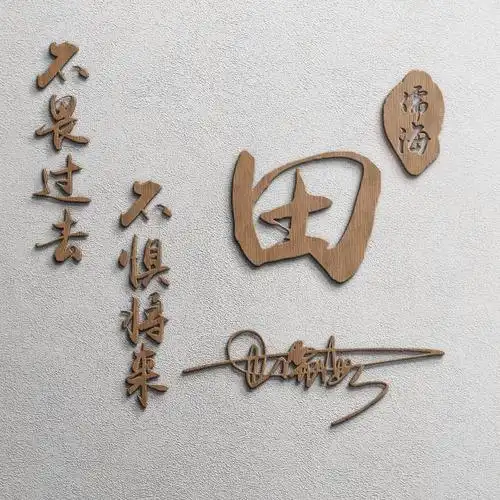 不畏过去
不惧将来
田
海